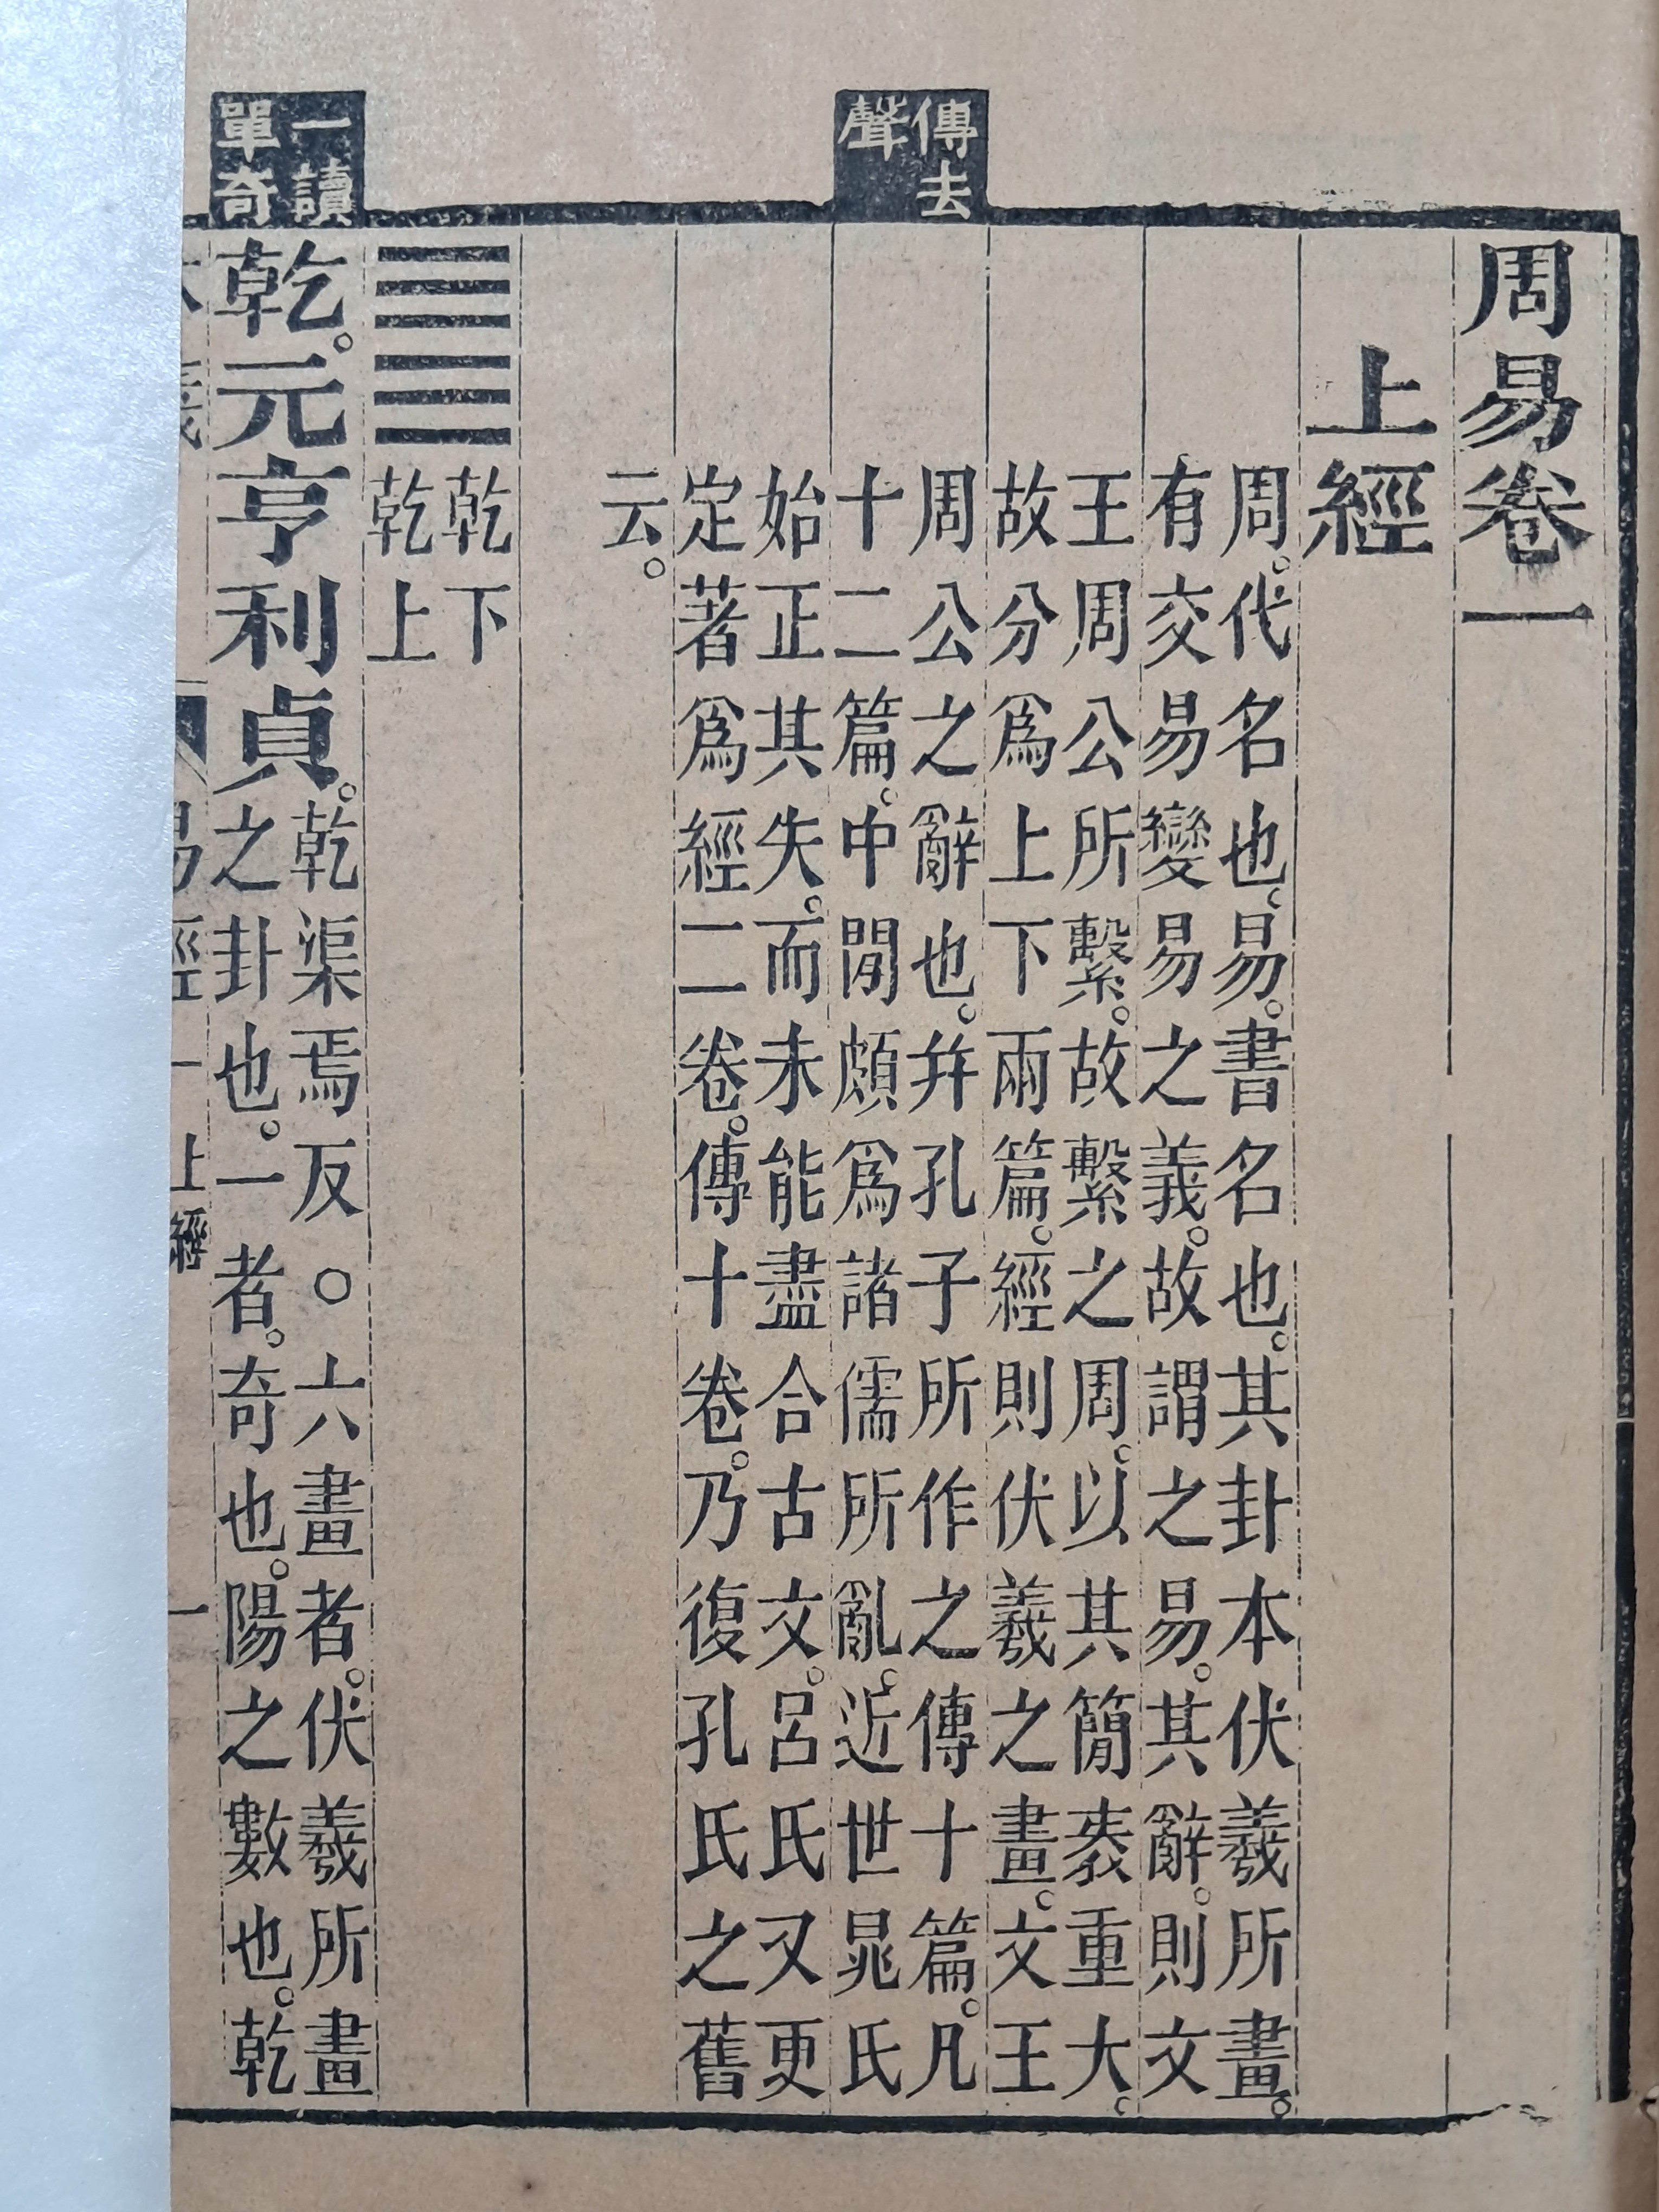 周易卷一
上經
周。代名也。易。書名也。其卦本伏羲所畫。
有交易變易之義。故謂之易。其辭。則文
王周公所繫。故繫之周。以其簡袠重大。
故分爲上下兩篇。經則伏羲之畫。文王
傳去
聲
周公之辭也。并孔子所作之傳十篇。凡
十二篇。中閒頗爲諸儒所亂。近世晁氏
始正其失。而未能盡合古文。呂氏又更
定著爲經二卷。傳十卷。乃復孔氏之舊
云。
䷀
乾下
乾上
一讀
單奇
乾。元亨利貞。
乾渠焉反。○六畫者。伏羲所畫
之卦也。一者。奇也。陽之數也。乾
易經
一
上經
一